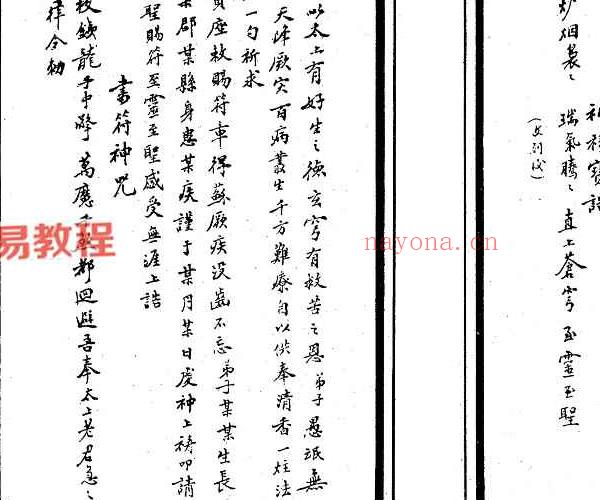 炉烟袅〻 瑞氣騰〻 直上蒼穹 至靈至聖
以太上有好生之德玄穹有救苦之恩弟子愚氓無
天降厥灾百病叢生千方難療自以供奉清香一炷法
一勺祈求
座敕賜符車得蘇厥疾没齒不忘弟子某某生長
某郡某縣身患某疾謹于某月某日虔神上禱叩請
聖賜符至靈至聖感受無涯上誥
書符神咒
鐵龍手中擎萬應 都迴避吾奉太上老君急〻
律令勅
易教程
nayona.cn